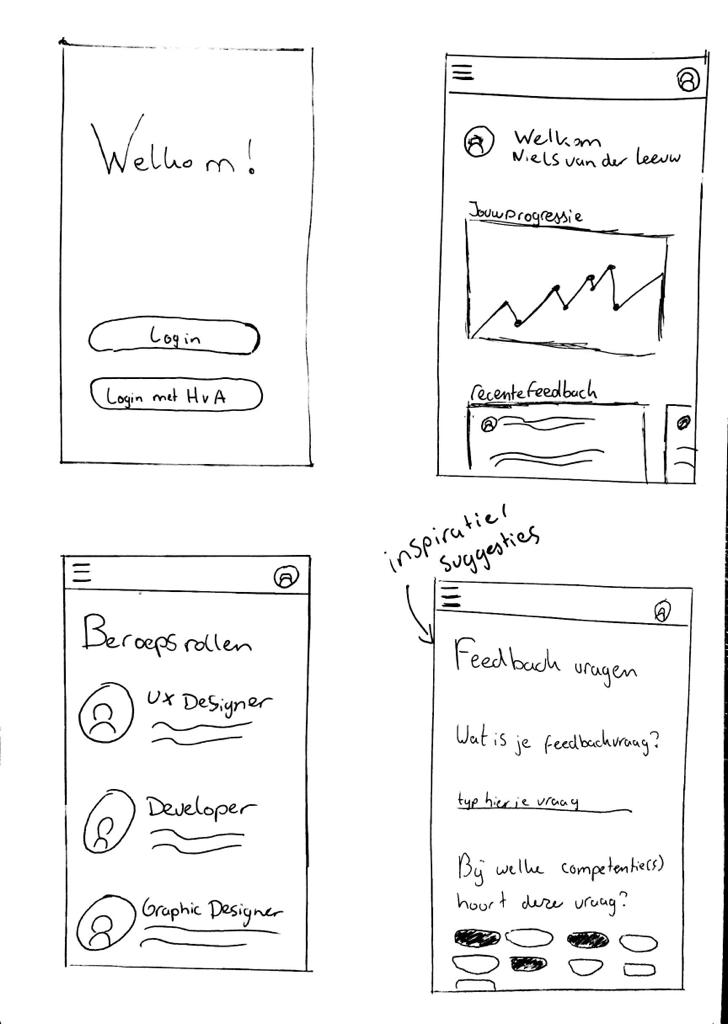 Welkom!
Login
Login met HvA
Welkom
Niels van der Leeuw
Jouw progressie
recente feedback
Beroepsrollen
UX Designer
Developer
Graphic Designer
inspiratie/
suggesties
Feedback vragen
Wat is je feedbackvraag?
typ hier je vraag
Bij welke competentie(s)
hoort deze vraag?